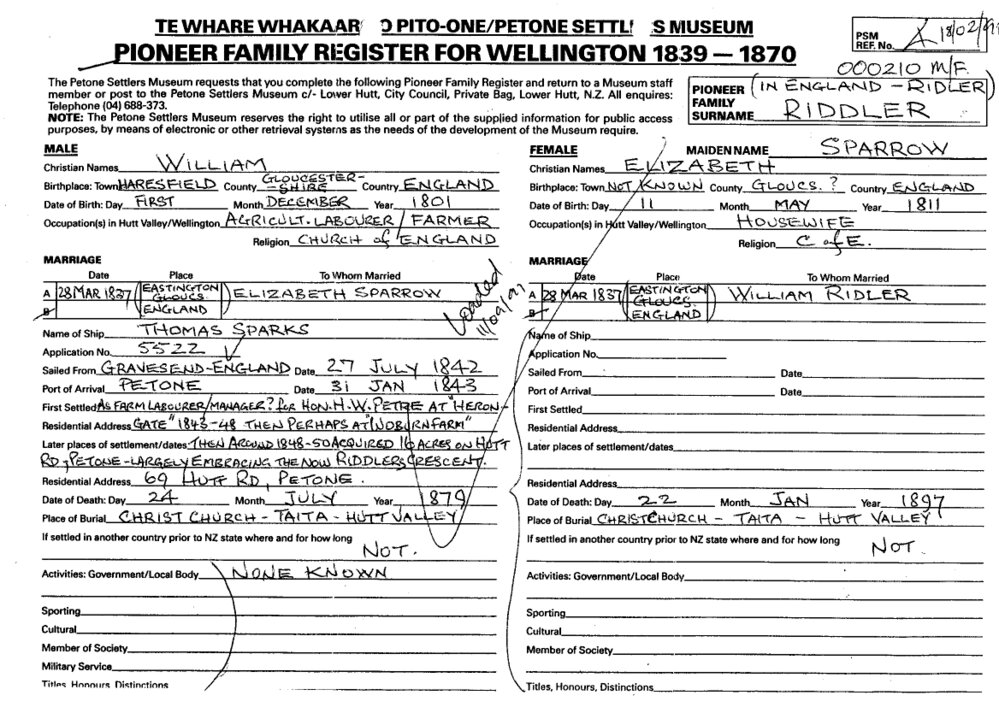 TE WHARE WHAKAAR O PITO-ONE/PETONE SETTL S MUSEUM
PIONEER FAMILY REGISTER FOR WELLINGTON 1839 — 1870
PSM
REF. No. 18/02/9
000210 M/F.
The Petone Settlers Museum requests that you complete the following Pioneer Family Register and return to a Museum staff
member or post to the Petone Settlers Museum c/- Lower Hutt, City Council, Private Bag, Lower Hutt, N.Z. All enquires:
Telephone (04) 688-373.
NOTE: The Petone Settlers Museum reserves the right to utilise all or part of the supplied information for public access
purposes, by means of electronic or other retrieval systems as the needs of the development of the Museum require.
PIONEER FAMILY SURNAME (IN ENGLAND - RIDLER) RIDDLER
MALE
Christian Names WILLIAM
Birthplace: Town HARESFIELD County GLOUCESTER-SHIRE Country ENGLAND
Date of Birth: Day FIRST Month DECEMBER Year 1801
Occupation(s) in Hutt Valley/Wellington AGRICULT. LABOURER / FARMER
Religion CHURCH of ENGLAND
MARRIAGE
Date Place To Whom Married
A 28 MAR 1837 EASTINGTON GLOUCS. ENGLAND ELIZABETH SPARROW
B
Loaded
11/09/97
Name of Ship THOMAS SPARKS
Application No. 5522
Sailed From GRAVESEND-ENGLAND Date 27 JULY 1842
Port of Arrival PETONE Date 31 JAN 1843
First Settled AS FARM LABOURER/MANAGER? for HON. H.W. PETRE AT "HERON-
Residential Address GATE" 1843-48 THEN PERHAPS AT "WOBURN FARM"
Later places of settlement/dates THEN AROUND 1848-50 ACQUIRED 16 ACRES ON HUTT
RD, PETONE - LARGELY EMBRACING THE NOW RIDDLERS CRESCENT.
Residential Address 69 HUTT RD, PETONE.
Date of Death: Day 24 Month JULY Year 1879
Place of Burial CHRIST CHURCH - TAITA - HUTT VALLEY
If settled in another country prior to NZ state where and for how long
NOT.
Activities: Government/Local Body NONE KNOWN
Sporting
Cultural
Member of Society
Military Service
Titles Honours Distinctions
FEMALE MAIDEN NAME SPARROW
Christian Names ELIZABETH
Birthplace: Town NOT KNOWN County GLOUCS. ? Country ENGLAND
Date of Birth: Day 11 Month MAY Year 1811
Occupation(s) in Hutt Valley/Wellington HOUSEWIFE
Religion C of E.
MARRIAGE
Date Place To Whom Married
A 28 MAR 1837 EASTINGTON GLOUCS. ENGLAND WILLIAM RIDLER
B
Name of Ship
Application No.
Sailed From Date
Port of Arrival Date
First Settled
Residential Address
Later places of settlement/dates
Residential Address
Date of Death: Day 22 Month JAN Year 1897
Place of Burial CHRISTCHURCH - TAITA - HUTT VALLEY
If settled in another country prior to NZ state where and for how long
NOT.
Activities: Government/Local Body
Sporting
Cultural
Member of Society
Titles, Honours, Distinctions